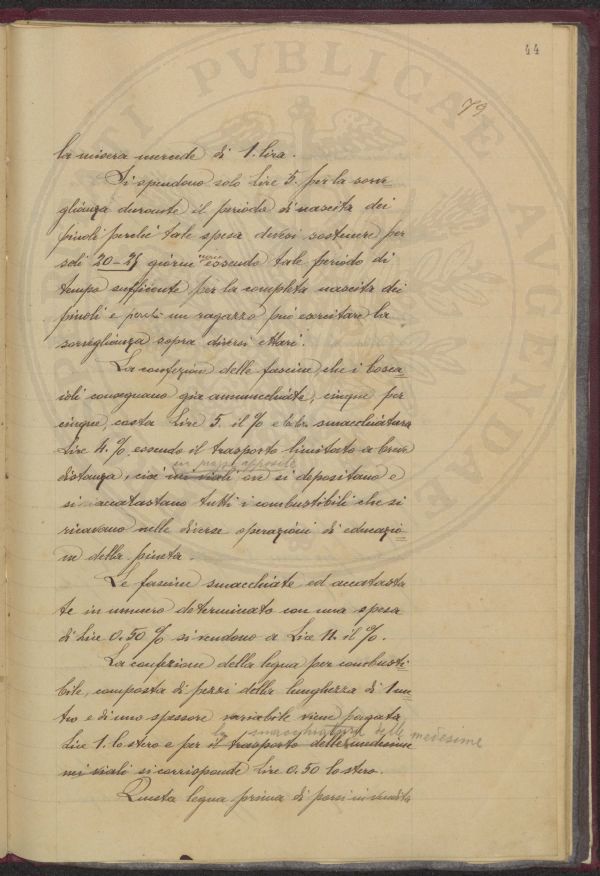 44
79
la misera mercede di 1. lira.
Si spendono solo Lire 5. per la sorve
glianza durante il periodo di nascita dei
pinoli perché tale spesa devesi sostenere per
soli 20-25 giorni essendo tale periodo di
tempo sufficente per la completa nascita dei
pinoli e perché un ragazzo può esercitare la
sorveglianza sopra diversi ettari.
La confezione delle fascine, che i bosca
ioli consegnano già ammucchiate, cinque per
cinque, costa Lire 5. il % e la smacchiatura
Lire 4. % essendo il trasporto limitato a breve
in piazze apposite
distanza, cioè nei viali ove si depositano e
si accatastano tutti i combustibili che si
ricavano nelle diverse operazioni di educazio
ne della pineta.
Le fascine smacchiate ed accatasta
te in numero determinato con una spesa
di Lire 0.50 % si vendono a Lire 11. il %.
La confezione della legna per combusti
bile, composta di pezzi della lunghezza di 1 me
tro e di uno spessore variabile viene pagata
la smacchiatura delle medesime
Lire 1. lo stero e per il trasporto delle medesime
nei viali si corrisponde Lire 0.50 lo stero.
Questa legna prima di porsi in vendita